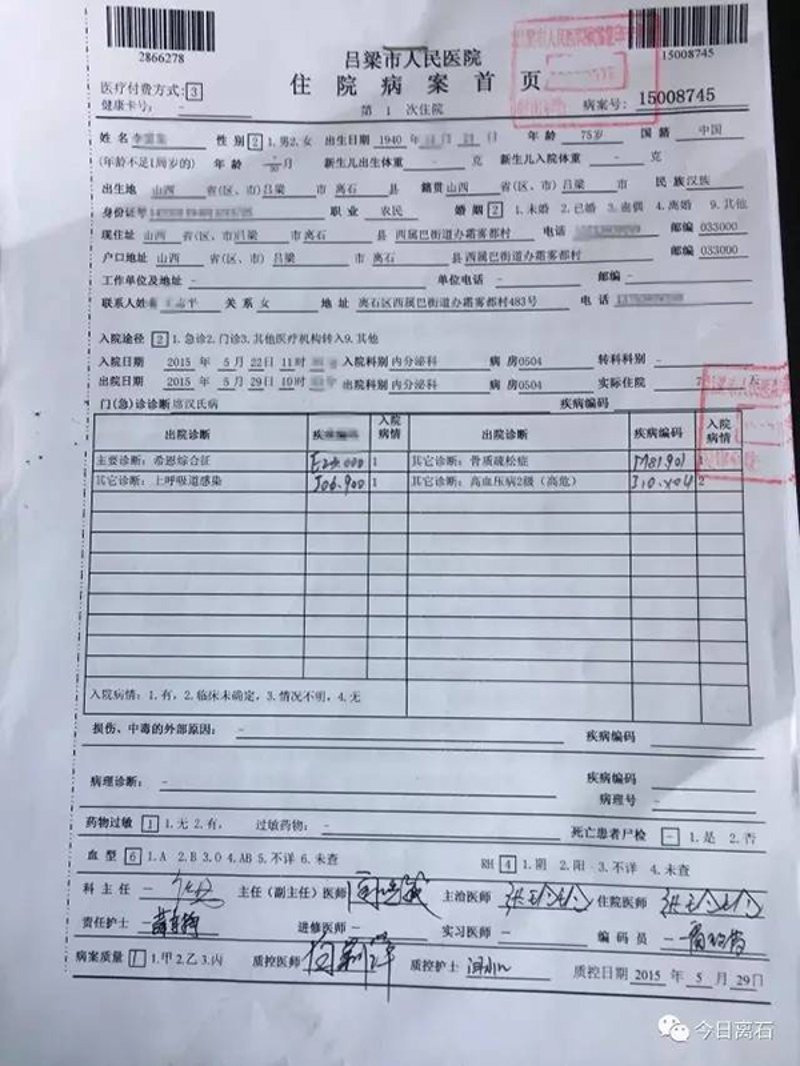 2866278
15008745
吕梁市人民医院
医疗付费方式：3
住院病案首页
健康卡号： -
第 1 次住院
病案号： 15008745
姓名 性别 2 1.男2.女 出生日期 1940 年 月 日 年龄 75岁 国籍 中国
(年龄不足1周岁的) 年龄 月 新生儿出生体重 - 克 新生儿入院体重 - 克
出生地 山西 省(区、市) 吕梁 市 离石 县 籍贯 山西 省(区、市) 吕梁 市 民族 汉族
身份证号 职业 农民 婚姻 2 1.未婚 2.已婚 3.丧偶 4.离婚 9.其他
现住址 山西 省(区、市) 吕梁 市 离石 县 西属巴街道办霜雾都村 电话 邮编 033000
户口地址 山西 省(区、市) 吕梁 市 离石 县 西属巴街道办霜雾都村 邮编 033000
工作单位及地址 - 单位电话 - 邮编 -
联系人姓名 关系 女 地址 离石区西属巴街道办霜雾都村483号 电话
入院途径 2 1.急诊2.门诊3.其他医疗机构转入9.其他
入院日期 2015 年 5 月 22日 11时 入院科别 内分泌科 病房 0504 转科科别 -
出院日期 2015 年 5 月 29日 10时 出院科别 内分泌科 病房 0504 实际住院 7 天
门(急)诊诊断 席汉氏病 疾病编码
出院诊断 疾病编码 入院病情 出院诊断 疾病编码 入院病情
主要诊断：希恩综合征 E23.000 1 其它诊断：骨质疏松症 M81.901
其它诊断：上呼吸道感染 J06.900 1 其它诊断：高血压病2级（高危） I10.x04 2
入院病情：1.有，2.临床未确定，3.情况不明，4.无
损伤、中毒的外部原因： - 疾病编码
病理诊断： - 疾病编码 -
病理号 -
药物过敏 1 1.无 2.有， 过敏药物： - 死亡患者尸检 - 1.是 2.否
血型 6 1.A 2.B 3.O 4.AB 5.不详 6.未查 RH 4 1.阴 2.阳 3.不详 4.未查
科主任 - 主任（副主任）医师 主治医师 住院医师
责任护士 - 进修医师 - 实习医师 - 编码员 -
病案质量 1 1.甲 2.乙 3.丙 质控医师 质控护士 质控日期 2015 年 5 月 29日
今日离石